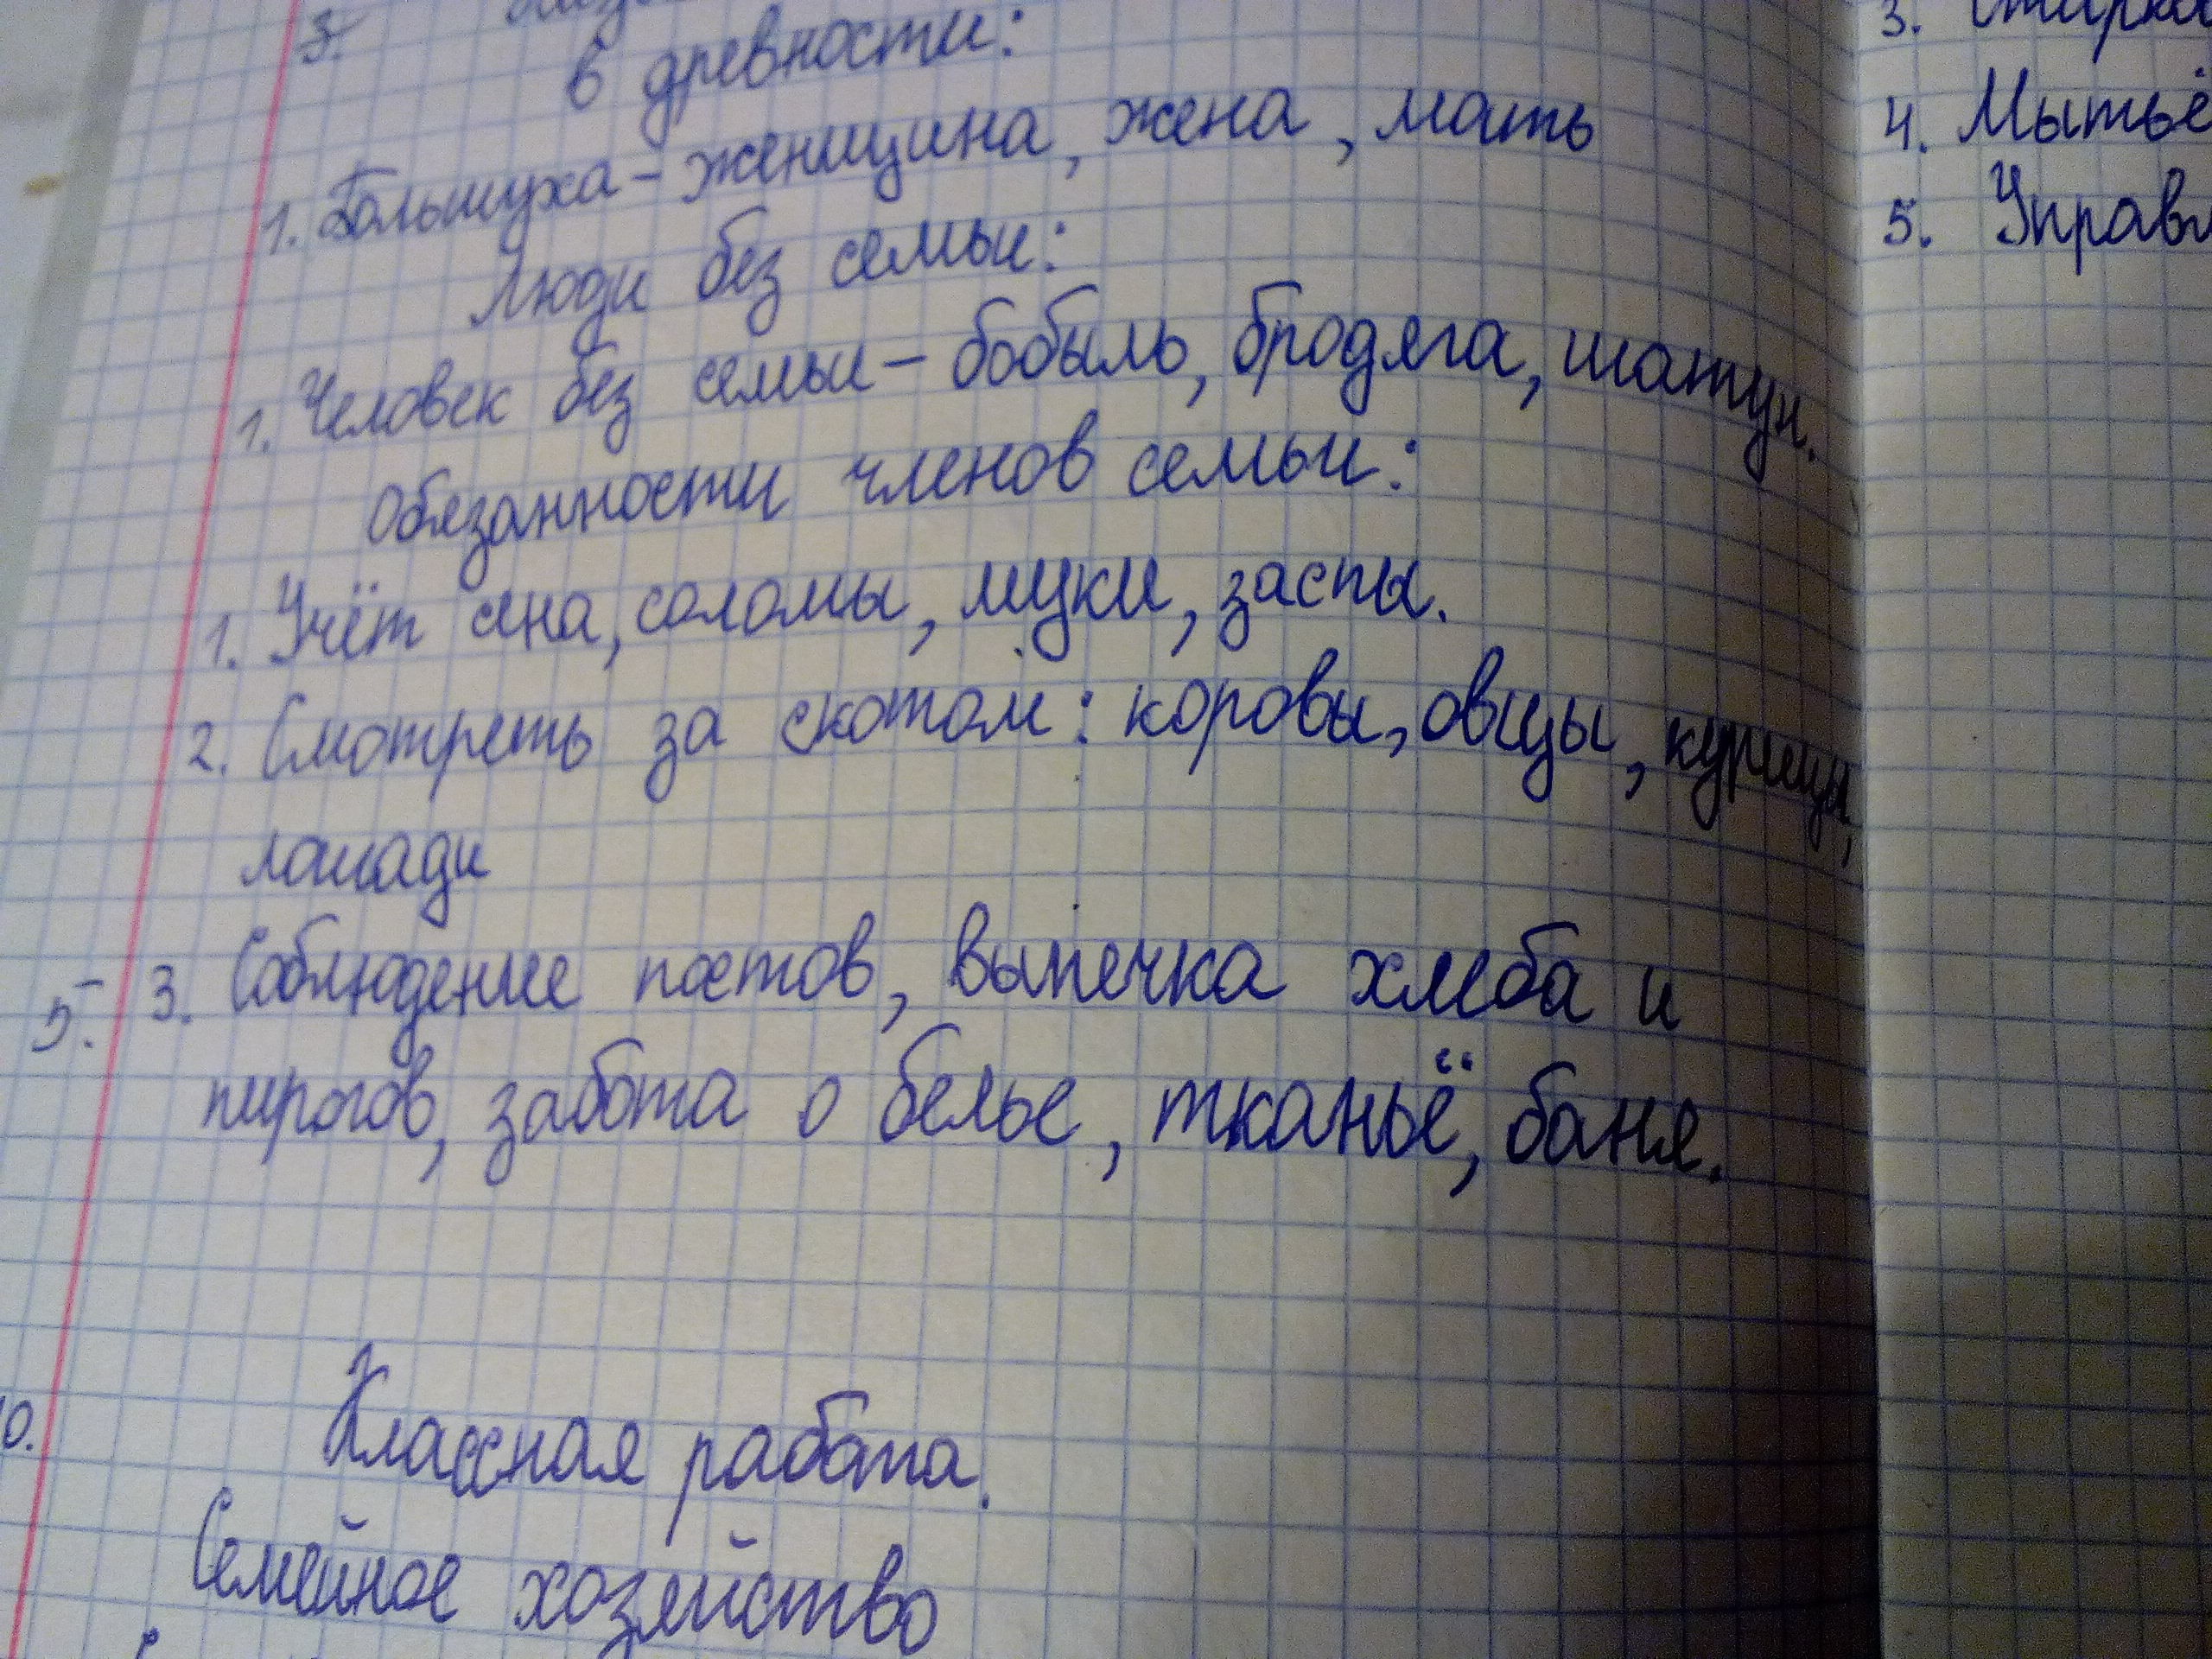 3.
в древности:
1. Большуха - женщина, жена, мать
Люди без семьи:
1. Человек без семьи - бобыль, бродяга, шатун.
Обязанности членов семьи:
1. Учёт сена, соломы, муки, заспы.
2. Смотреть за скотом: коровы, овцы, курицы,
лошади
5. 3. Соблюдение постов, выпечка хлеба и
пирогов, забота о белье, тканьё, баня.
Классная работа.
Семейное хозяйство
3.
4. Мытьё
5.